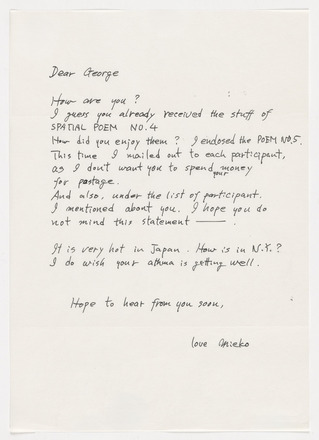 Dear George
How are you?
I guess you already received the stuff of
SPATIAL POEM NO.4
How did you enjoy them? I enclosed the POEM NO.5.
This time I mailed out to each participant,
as I don't want you to spend your money
for postage.
And also, under the list of participant.
I mentioned about you. I hope you do
not mind this statement —— .
It is very hot in Japan. How is in N.Y.?
I do wish your athma is getting well.
Hope to hear from you soon,
love Mieko